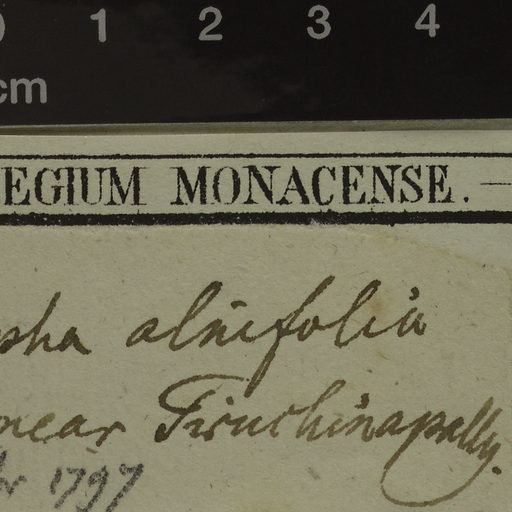 0 1 2 3 4
cm
EGIUM MONACENSE.
pha alnifolia
near Tiruchinapally.
br 1797